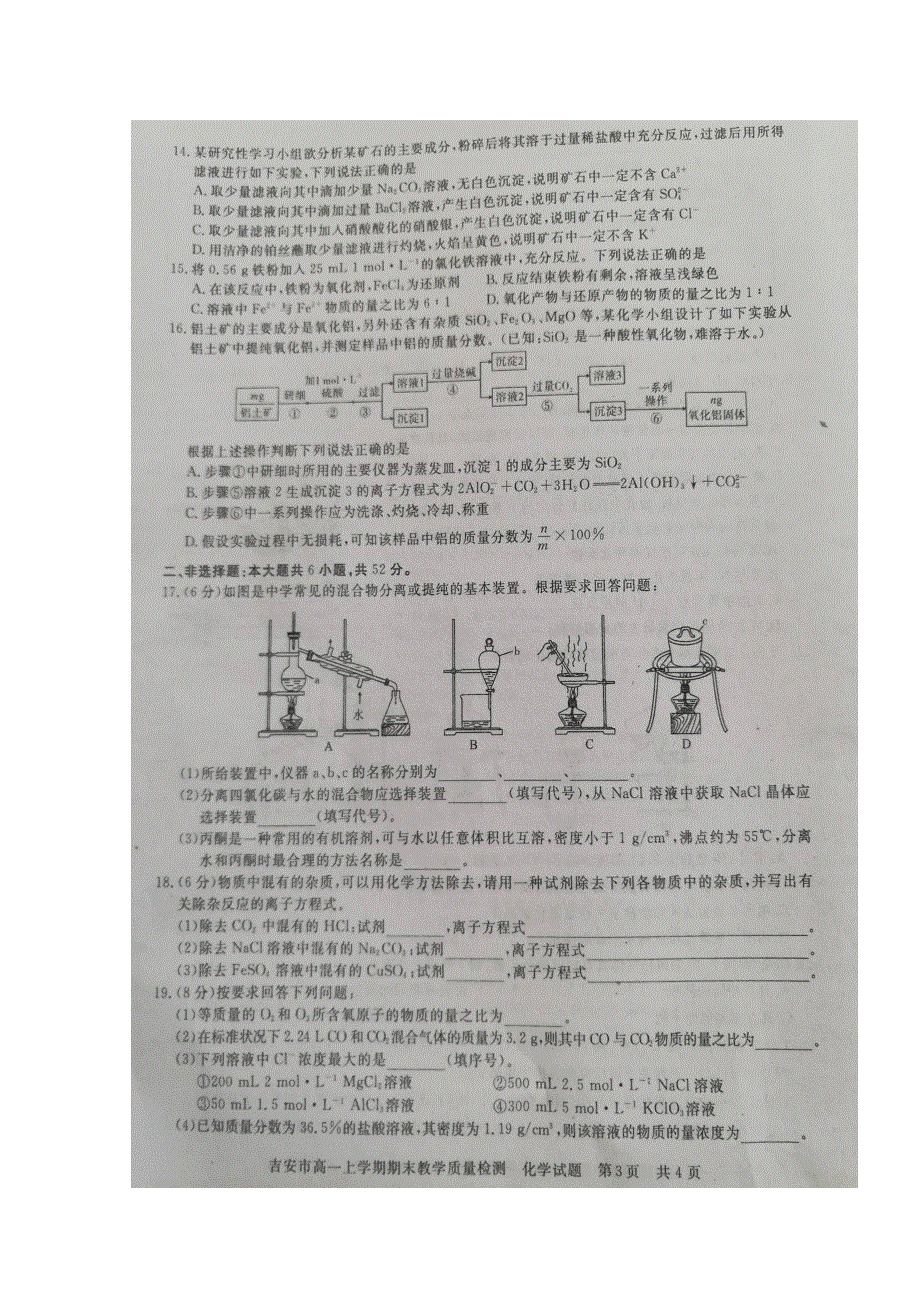 14.某研究性学习小组欲分析某矿石的主要成分,粉碎后将其溶于过量稀盐酸中充分反应,过滤后用所得
滤液进行如下实验,下列说法正确的是
A.取少量滤液向其中滴加少量Na₂CO₃溶液,无白色沉淀,说明矿石中一定不含Ca²⁺
B.取少量滤液向其中滴加过量BaCl₂溶液,产生白色沉淀,说明矿石中一定含有SO₄²⁻
C.取少量滤液向其中加入硝酸酸化的硝酸银,产生白色沉淀,说明矿石中一定含有Cl⁻
D.用洁净的铂丝蘸取少量滤液进行灼烧,火焰呈黄色,说明矿石中一定不含K⁺
15.将0.56 g铁粉加入25 mL 1 mol·L⁻¹的氯化铁溶液中,充分反应。下列说法正确的是
A.在该反应中,铁粉为氧化剂,FeCl₃为还原剂 B.反应结束铁粉有剩余,溶液呈浅绿色
C.溶液中Fe²⁺与Fe³⁺物质的量之比为6∶1 D.氧化产物与还原产物的物质的量之比为1∶1
16.铝土矿的主要成分是氧化铝,另外还含有杂质SiO₂、Fe₂O₃、MgO等,某化学小组设计了如下实验从
铝土矿中提纯氧化铝,并测定样品中铝的质量分数。(已知:SiO₂是一种酸性氧化物,难溶于水。)
mg
铝土矿
研细
①
加1 mol·L⁻¹
硫酸
②
过滤
③
溶液1
沉淀1
过量烧碱
④
沉淀2
溶液2
过量CO₂
⑤
溶液3
沉淀3
一系列
操作
⑥
ng
氧化铝固体
根据上述操作判断下列说法正确的是
A.步骤①中研细时所用的主要仪器为蒸发皿,沉淀1的成分主要为SiO₂
B.步骤⑤溶液2生成沉淀3的离子方程式为2AlO₂⁻+CO₂+3H₂O══2Al(OH)₃↓+CO₃²⁻
C.步骤⑥中一系列操作应为洗涤、灼烧、冷却、称重
D.假设实验过程中无损耗,可知该样品中铝的质量分数为n/m×100%
二、非选择题:本大题共6小题,共52分。
17.(6分)如图是中学常见的混合物分离或提纯的基本装置。根据要求回答问题:
a
水
b
c
A B C D
(1)所给装置中,仪器a、b、c的名称分别为______、______、______。
(2)分离四氯化碳与水的混合物应选择装置______(填写代号),从NaCl溶液中获取NaCl晶体应
选择装置______(填写代号)。
(3)丙酮是一种常用的有机溶剂,可与水以任意体积比互溶,密度小于1 g/cm³,沸点约为55℃,分离
水和丙酮时最合理的方法名称是______。
18.(6分)物质中混有的杂质,可以用化学方法除去,请用一种试剂除去下列各物质中的杂质,并写出有
关除杂反应的离子方程式。
(1)除去CO₂中混有的HCl:试剂______,离子方程式____________。
(2)除去NaCl溶液中混有的Na₂CO₃:试剂______,离子方程式____________。
(3)除去FeSO₄溶液中混有的CuSO₄:试剂______,离子方程式____________。
19.(8分)按要求回答下列问题:
(1)等质量的O₂和O₃所含氧原子的物质的量之比为______。
(2)在标准状况下2.24 L CO和CO₂混合气体的质量为3.2 g,则其中CO与CO₂物质的量之比为______。
(3)下列溶液中Cl⁻浓度最大的是______(填序号)。
①200 mL 2 mol·L⁻¹ MgCl₂溶液 ②500 mL 2.5 mol·L⁻¹ NaCl溶液
③50 mL 1.5 mol·L⁻¹ AlCl₃溶液 ④300 mL 5 mol·L⁻¹ KClO₃溶液
(4)已知质量分数为36.5%的盐酸溶液,其密度为1.19 g/cm³,则该溶液的物质的量浓度为______。
吉安市高一上学期期末教学质量检测 化学试题 第3页 共4页